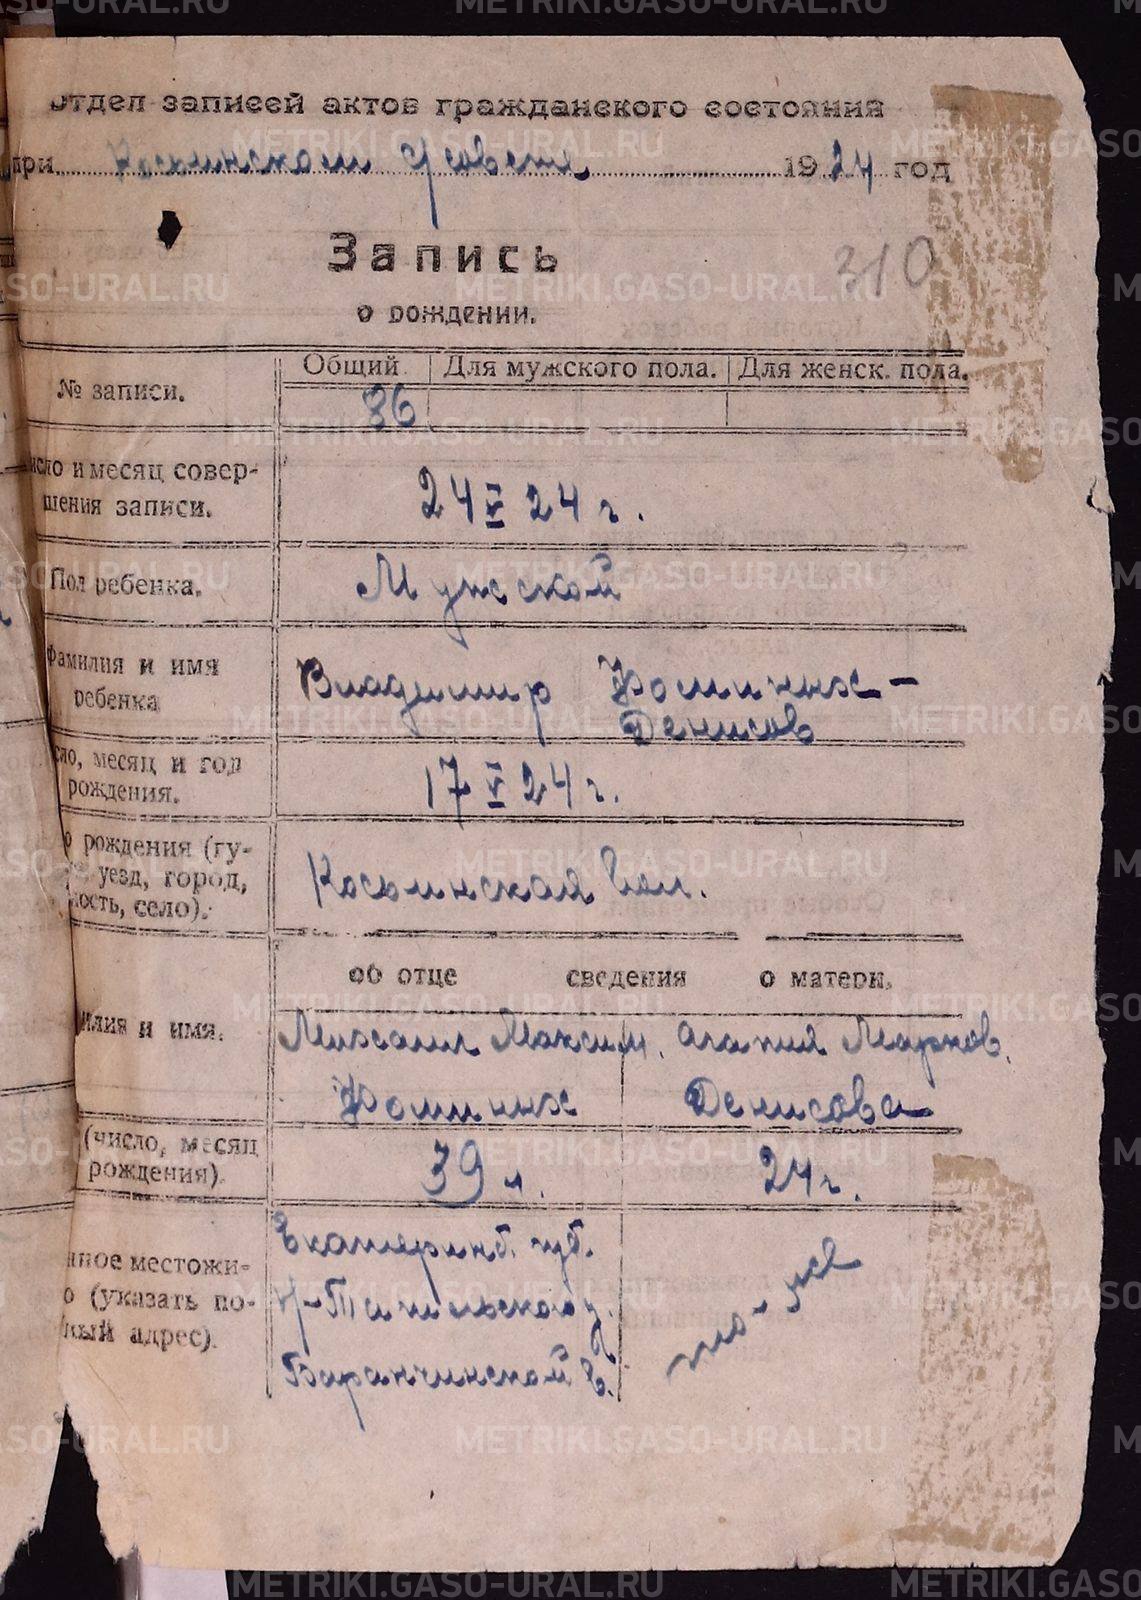 Отдел записей актов гражданского состояния
при Косьинском с/совете 1924 год
Запись
310
о рождении.
№ записи.
Общий. Для мужского пола. Для женск. пола.
86.
исло и месяц совер-
шения записи.
24 V 24 г.
Пол ребенка.
Мужской
Фамилия и имя
ребенка
Владимир Фоминых-
Денисов
сло, месяц и год
рождения.
17 V 24 г.
о рождения (гу-
уезд, город,
ность, село).
Косьинская вол.
об отце сведения о матери.
илия и имя.
Михаил Максим. Агапия Марков.
Фоминых Денисова
(число, месяц
рождения).
39 л. 24 г.
нное местожи-
о (указать по-
ный адрес).
Екатеринб. губ.
Н-Тагильского у.
Баранчинской в.
то-же
METRIKI.GASO-URAL.RU